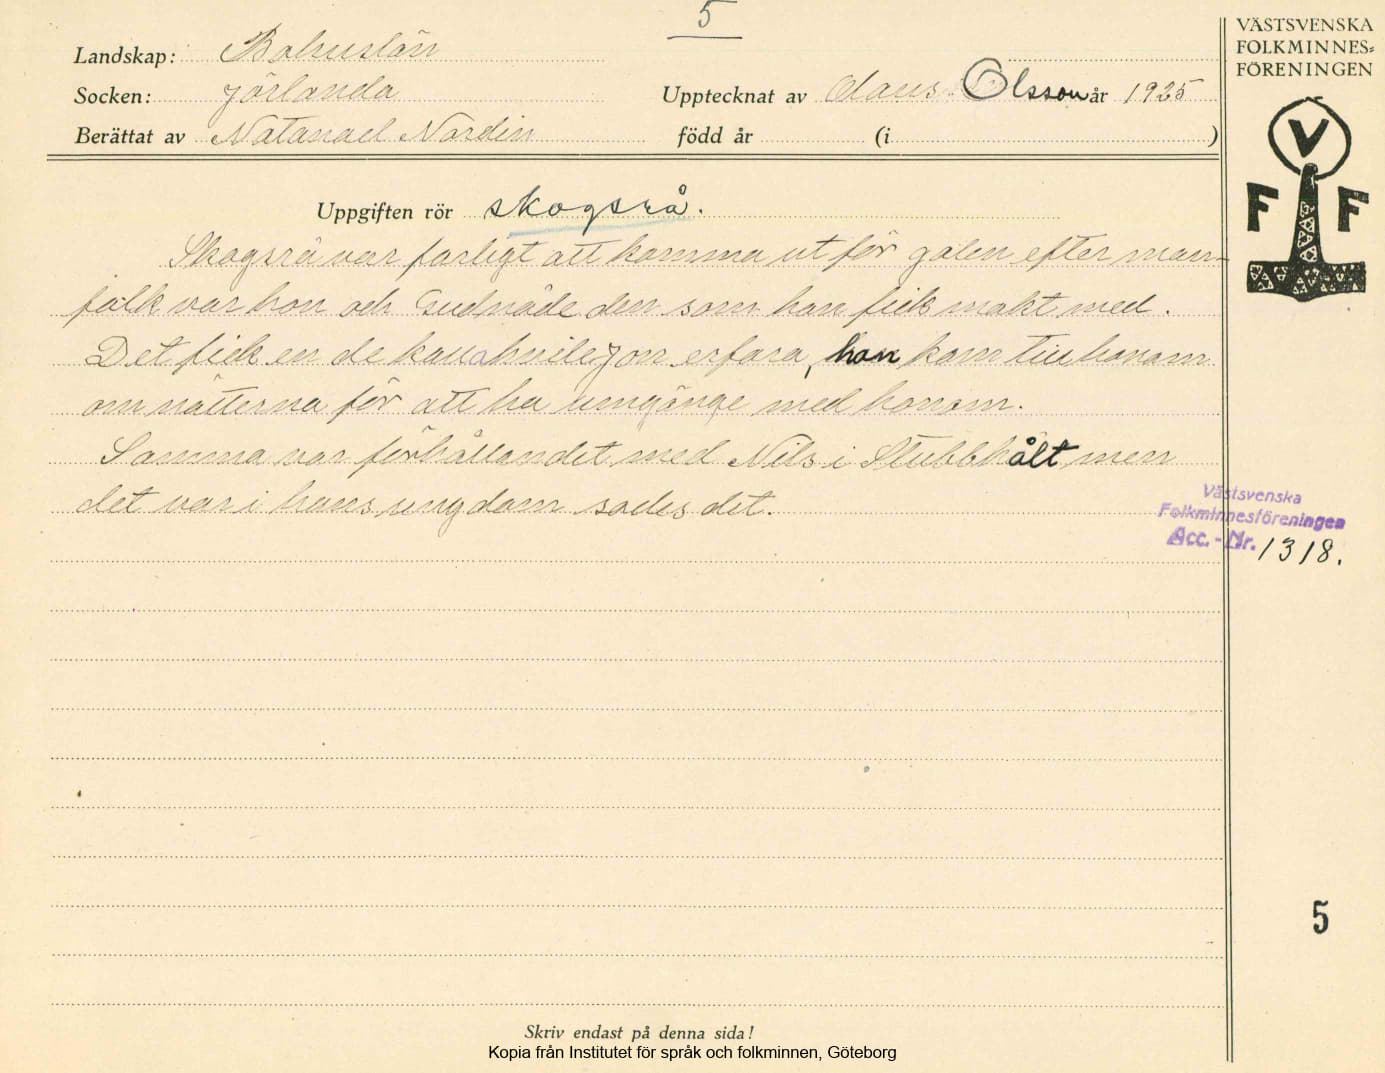 5
VÄSTSVENSKA
FOLKMINNES=
FÖRENINGEN
V
F F
Landskap: Bohuslän
Socken: Jörlanda
Upptecknat av Olaus Olsson år 1925
Berättat av Natanael Nordin född år (i )
Uppgiften rör skogsrå.
Skogsrå var farligt att komma ut för galen efter man-
folk var hon och Gudnåde den som hon fick makt med.
Det fick en de Jon erfara, hon kom till honom
om nätterna för att ha umgänge med honom.
Samma var förhållandet med Nils i Stubbhålt men
det var i hans ungdom sades det.
Västsvenska
Folkminnesföreningen
Acc. - Nr. 1318.
5
Skriv endast på denna sida!
Kopia från Institutet för språk och folkminnen, Göteborg